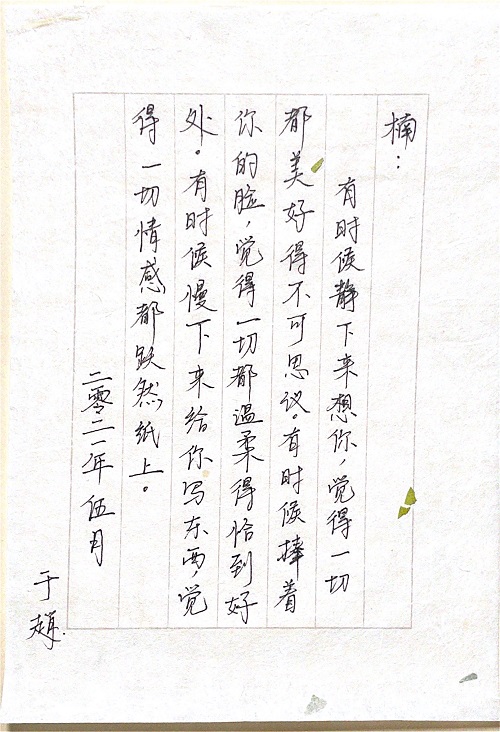 楠：
有时候静下来想你，觉得一切
都美好得不可思议。有时候捧着
你的脸，觉得一切都温柔得恰到好
处。有时候慢下来给你写东西，觉
得一切情感都跃然纸上。
二零二一年伍月
于赵.